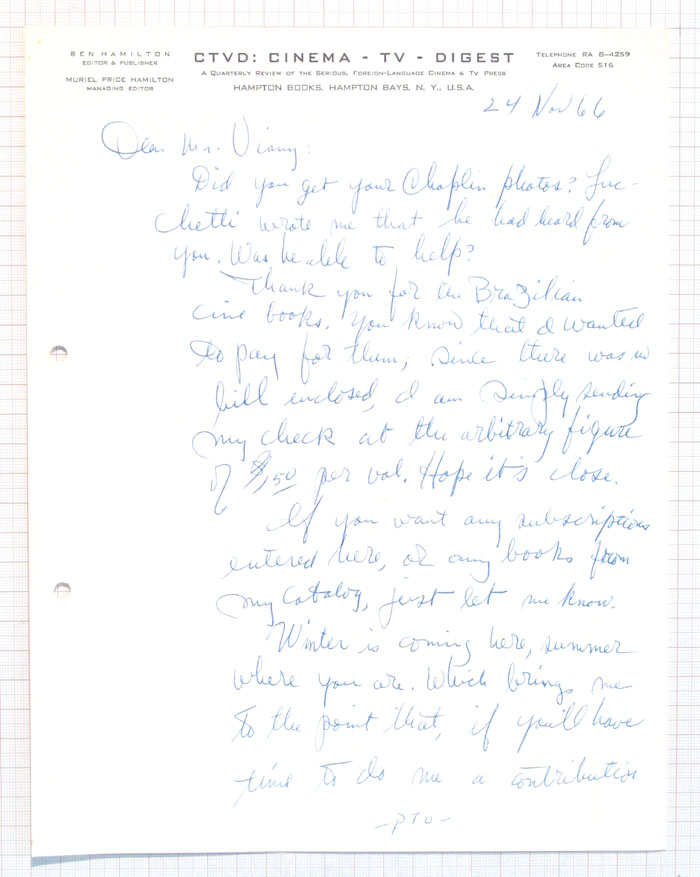 BEN HAMILTON
EDITOR & PUBLISHER
MURIEL PRICE HAMILTON
MANAGING EDITOR
CTVD: CINEMA - TV - DIGEST
A QUARTERLY REVIEW OF THE SERIOUS, FOREIGN-LANGUAGE CINEMA & TV PRESS
HAMPTON BOOKS, HAMPTON BAYS, N. Y., U.S.A.
TELEPHONE RA 8-4259
AREA CODE 516
24 Nov 66
Dear Mr. Viany:
Did you get your Chaplin photos? Luc-
chetti wrote me that he had heard from
you. Was he able to help?
Thank you for the Brazilian
cine books. You know that I wanted
to pay for them; since there was no
bill enclosed, I am simply sending
my check at the arbitrary figure
of $1.50 per vol. Hope it's close.
If you want any subscriptions
entered here, or any books from
my catalog, just let me know.
Winter is coming here, summer
where you are. Which brings me
to the point that, if you'll have
time to do me a contribution
- PTO -